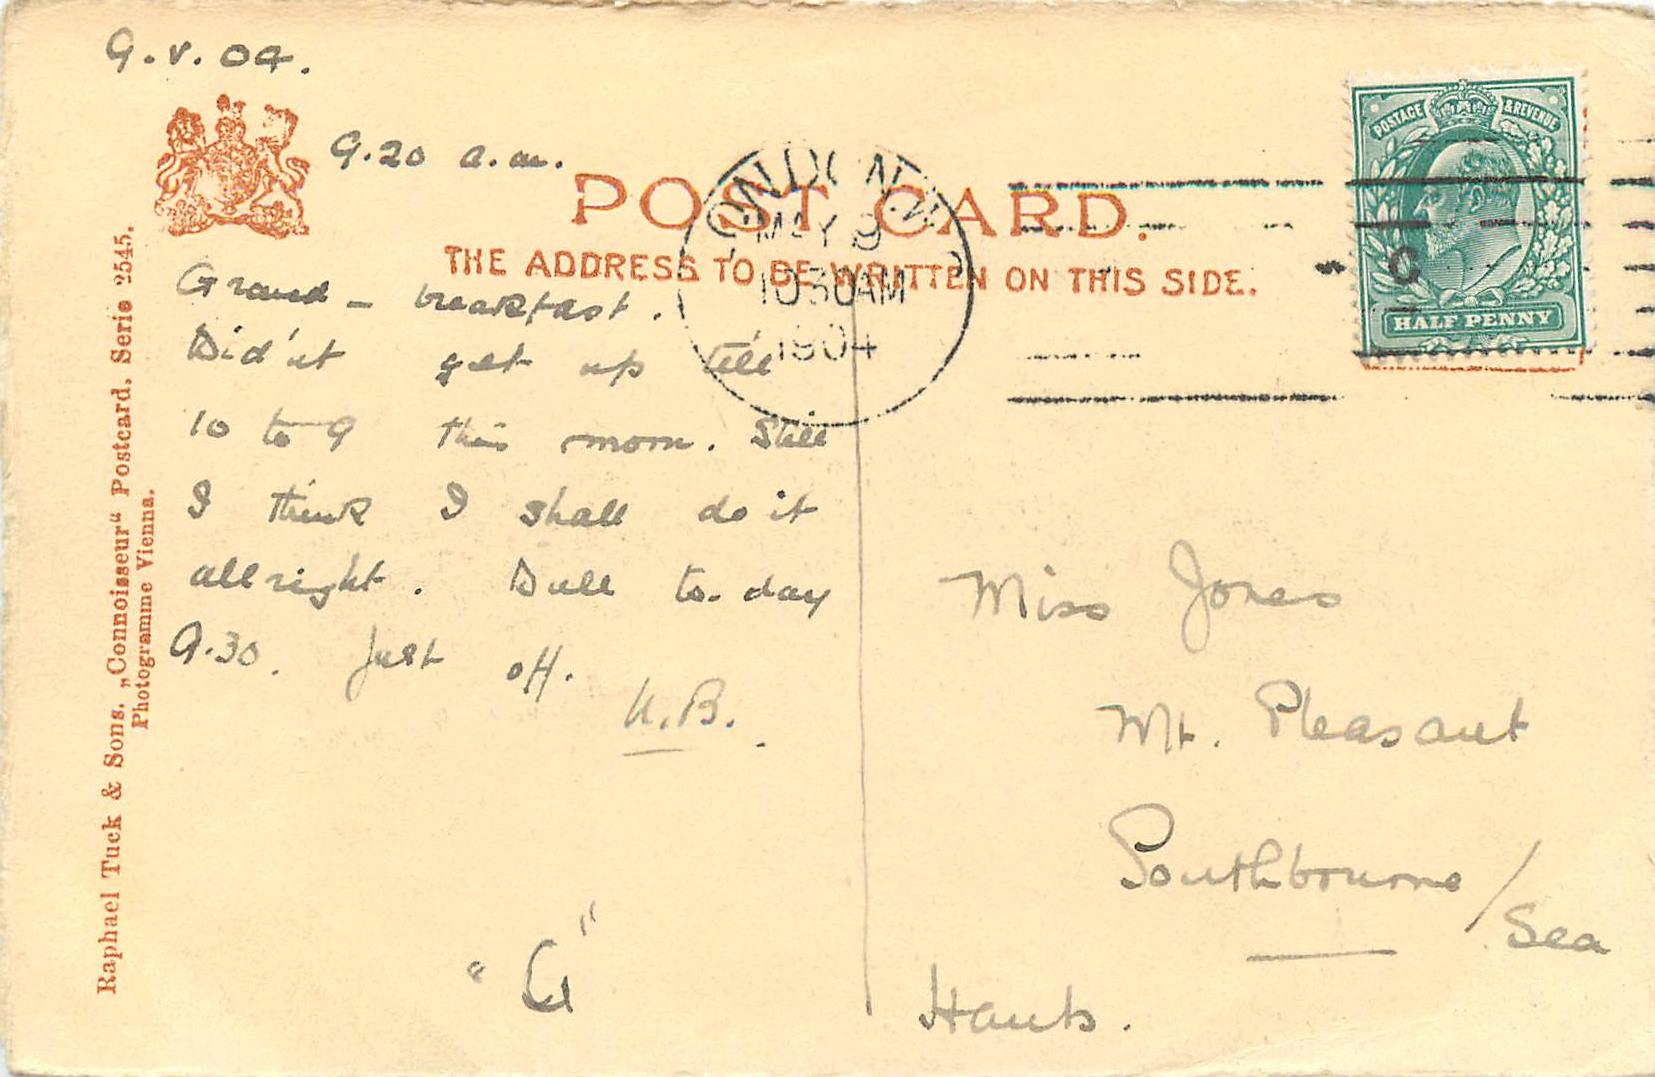 9.V.04.
9.20 a.m.
POST CARD.
THE ADDRESS TO BE WRITTEN ON THIS SIDE.
LONDON. N.W
MAY 9
1030AM
1904
POSTAGE & REVENUE
HALF PENNY
Grand – breakfast.
Did'nt get up till
10 to 9 this morn. Still
I think I shall do it
allright. Dull to-day
9.30. Just off.
"G"
Miss Jones
Mt. Pleasant
Southbourne/
Sea
Hants.
Raphael Tuck & Sons. „Connoisseur“ Postcard. Serie 2545.
Photogramme Vienna.